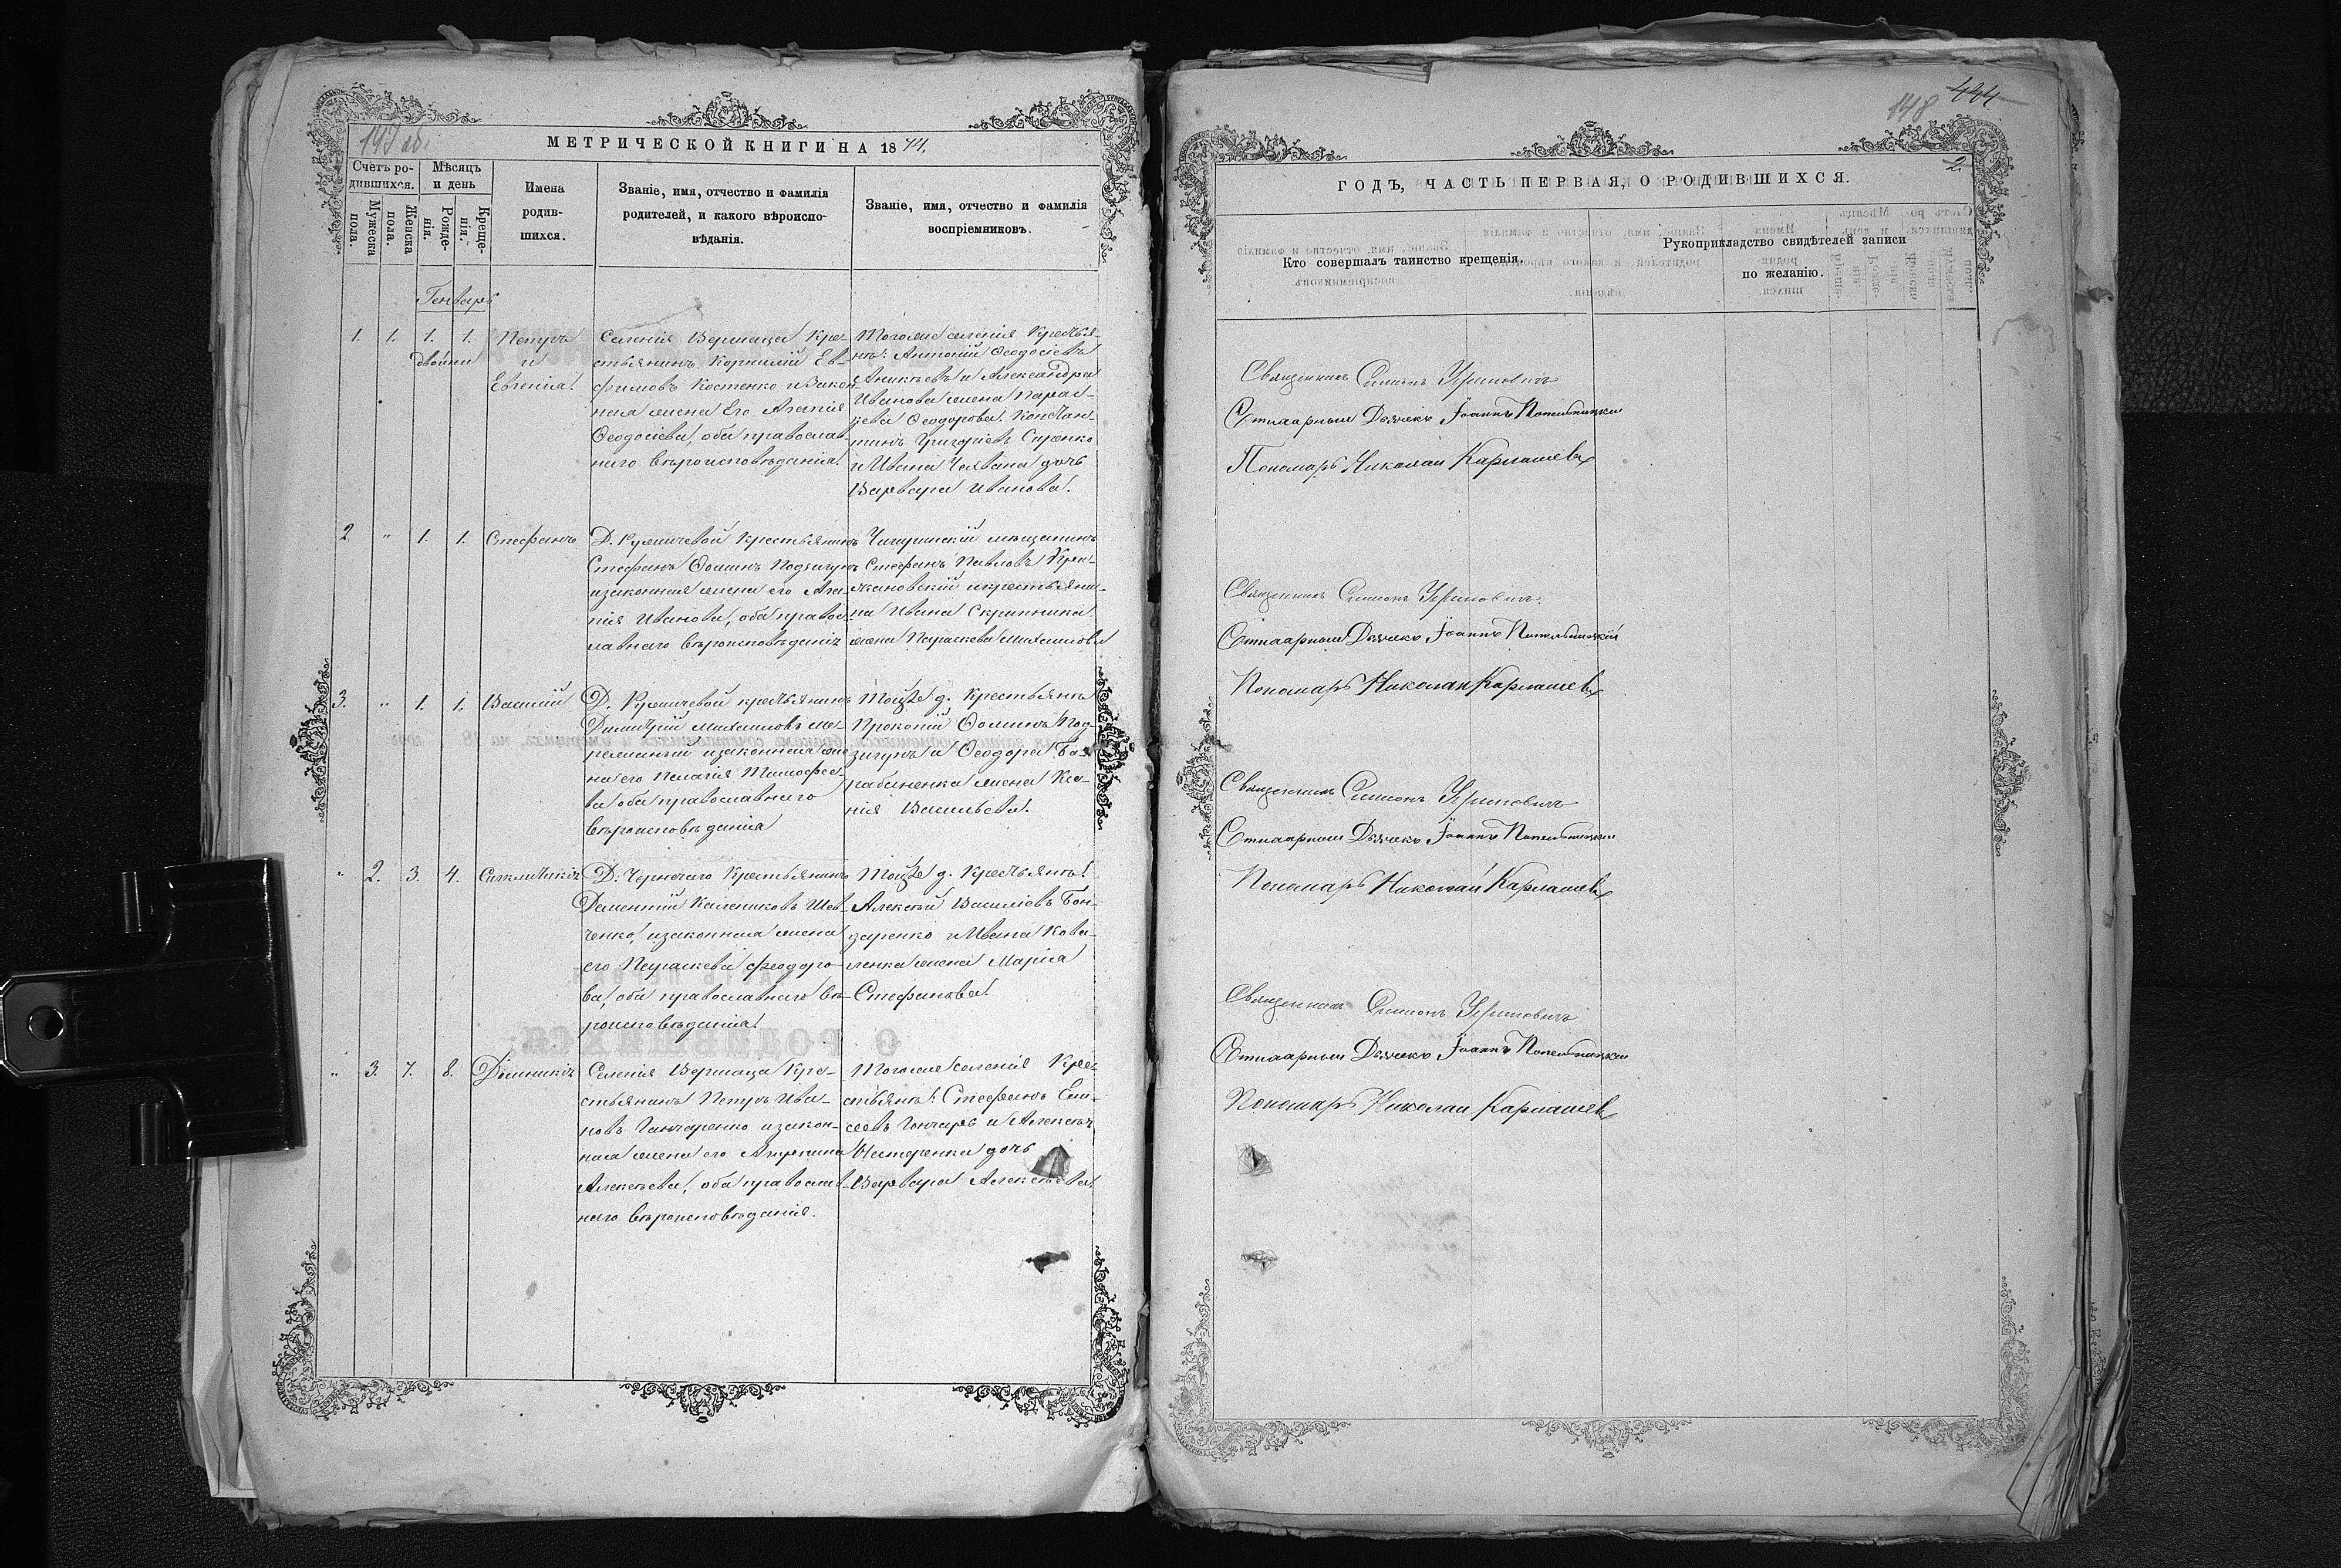 МЕТРИЧЕСКОЙ КНИГИ НА 1874.
Счетъ родившихся.
Мѣсяцъ и день
Мужеска пола.
Женска пола.
Рожденія.
Крещенія.
Имена
родив-
шихся.
Званіе, имя, отчество и фамилія
родителей, и какого вѣроиспо-
вѣданія.
Званіе, имя, отчество и фамилія
воспріемниковъ.
Генварь
1. 1. 1. 1.
двойни
Петръ
и
Евгенія.
Селенія Вершаца Кре-
стьянинъ Корнилій Ев-
фимовъ Костенко и закон-
ная жена Его Агапія
Ѳеодосіева, оба православ-
наго вѣроисповѣданія.
Тогоже селенія Крестья-
не: Антоній Ѳеодосіевъ
Аникіевъ и Александра
Иванова жена Парас-
кева Ѳеодорова. Констан-
тинъ Григоріевъ Сиренко
и Ивана Чалвана дочь
Варвара Иванова.
2. " 1. 1.
Стефанъ
Д. Рублевой Крестьянинъ
Стефанъ Ѳоминъ Подзигунъ
и законная жена его Ага-
пія Иванова, оба правос-
лавнаго вѣроисповѣданія
Чигиринскій мѣщанинъ
Стефанъ Павловъ
и крестьяни-
на Ивана Скрипника
жена Параскева Михаилова
3. " 1. 1.
Василій
крестьянинъ
Димитрій Михаиловъ
и законная же-
на его Пелагія Тимофее-
ва оба православнаго
вѣроисповѣданія
Тойже д. Крестьянъ
Прокопій Ѳоминъ Под-
зигунъ и Ѳеодора Ба-
рабаненка жена Ксе-
нія Васильева.
" 2. 3. 4.
Сигклитикія
Д. Чернечаго Крестьянинъ
Дементій Калениковъ Шев-
ченко, и законная жена
его Параскева Феодоро-
ва, оба православнаго вѣ-
роисповѣданія.
Тойже д. Крестьянъ:
Алексѣй Василіевъ Бон-
даренко и Ивана Кова-
ленка жена Марія
Стефанова.
" 3. 7. 8.
Домникія
Селенія Вершаца Кре-
стьянинъ Петръ Ива-
новъ Гончаренко и закон-
ная жена его Агрипина
Алексѣева, оба православ-
наго вѣроисповѣданія.
Тогоже селенія Кре-
стьянъ: Стефанъ Ели-
сеевъ Гончаръ и Алексѣя
Нестеренка дочь
Варвара Алексѣева.
148
444
2.
ГОДЪ, ЧАСТЬ ПЕРВАЯ, О РОДИВШИХСЯ.
Кто совершалъ таинство крещенія.
Рукоприкладство свидѣтелей записи
по желанію.
Священникъ Симеонъ
Стихарный Дьячекъ Іоаннъ Попельницкій
Пономарь Николай Карпашевъ
Священникъ Симеонъ
Стихарный Дьячекъ Іоаннъ Попельницкій
Пономарь Николай Карпашевъ
Священникъ Симеонъ
Стихарный Дьячекъ Іоаннъ Попельницкій
Пономарь Николай Карпашевъ
Священникъ Симеонъ
Стихарный Дьячекъ Іоаннъ Попельницкій
Пономарь Николай Карпашевъ